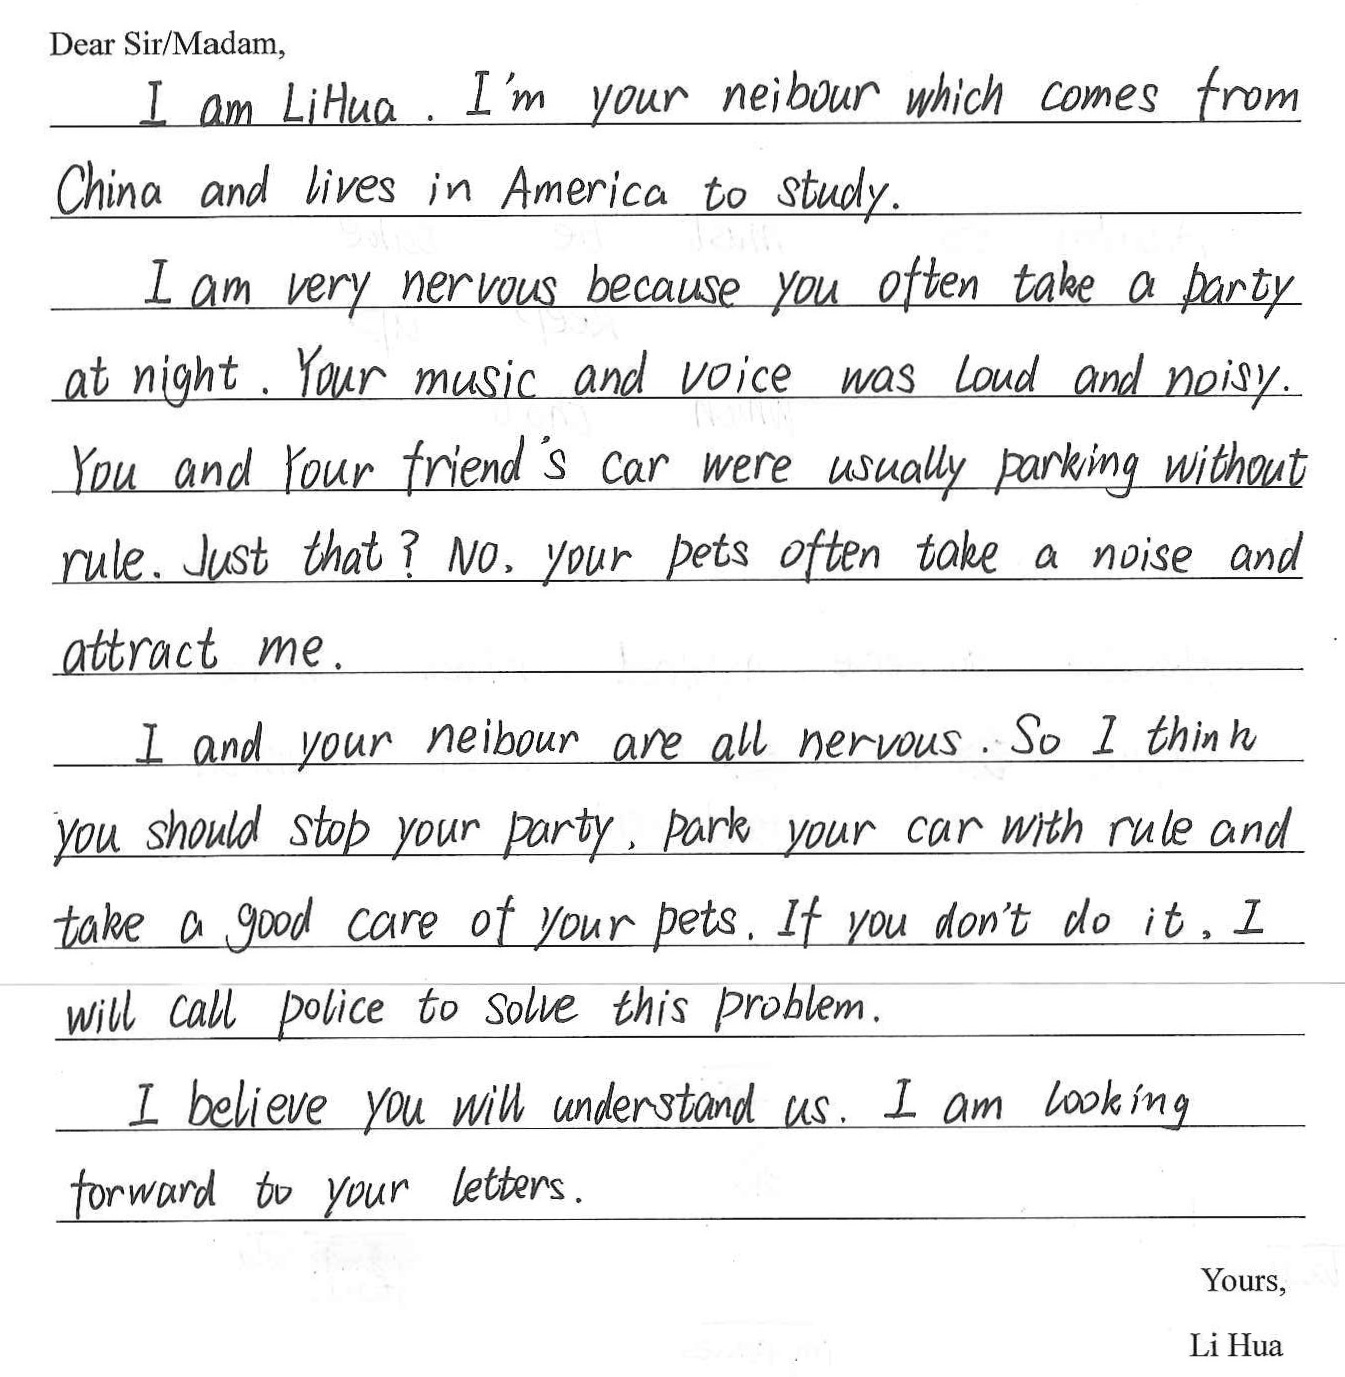 Dear Sir/Madam,
I am LiHua. I'm your neibour which comes from
China and lives in America to study.
I am very nervous because you often take a party
at night. Your music and voice was loud and noisy.
You and Your friend's car were usually parking without
rule. Just that? No, your pets often take a noise and
attract me.
I and your neibour are all nervous. So I think
you should stop your party, park your car with rule and
take a good care of your pets. If you don't do it, I
will call police to solve this problem.
I believe you will understand us. I am looking
forward to your letters.
Yours,
Li Hua